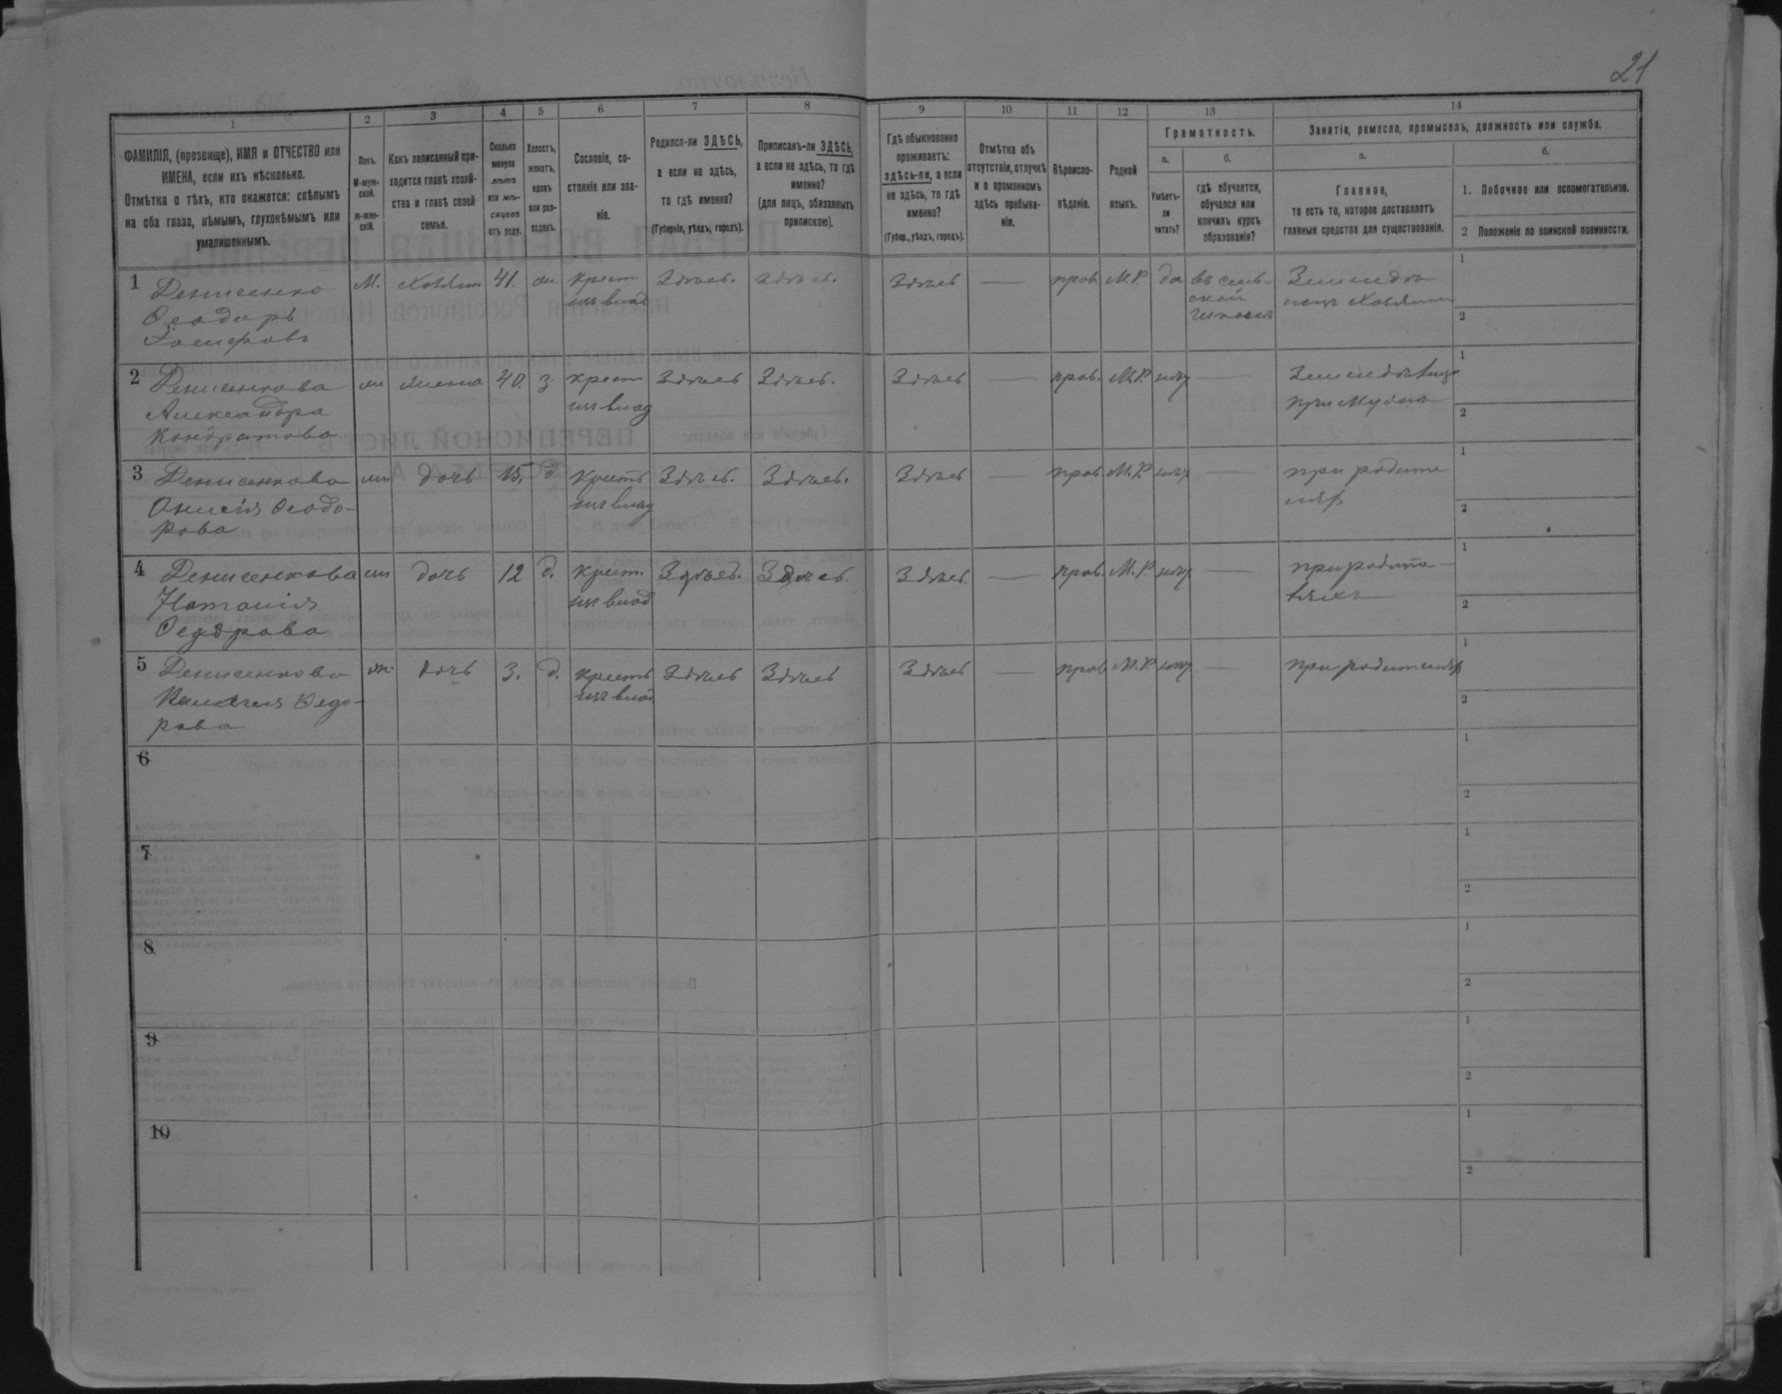 21
1
2
3
4
5
6
7
8
9
10
11
12
13
14
ФАМИЛІЯ, (прозвище), ИМЯ и ОТЧЕСТВО или
ИМЕНА, если ихъ нѣсколько.
Отмѣтка о тѣхъ, кто окажется: слѣпымъ
на оба глаза, нѣмымъ, глухонѣмымъ или
умалишеннымъ.
Полъ.
М-муж-
ской.
Ж-жен-
скій.
Какъ записанный при-
ходится главѣ хозяй-
ства и главѣ своей
семьи.
Сколько
минуло
лѣтъ
или мѣ-
сяцевъ
отъ роду.
Холостъ,
женатъ,
вдовъ
или раз-
веденъ.
Сословіе, со-
стояніе или зва-
ніе.
Родился-ли ЗДѢСЬ,
а если не здѣсь,
то гдѣ именно?
(Губернія, уѣздъ, городъ).
Приписанъ-ли ЗДѢСЬ,
а если не здѣсь, то гдѣ
именно?
(для лицъ, обязанныхъ
припискою).
Гдѣ обыкновенно
проживаетъ:
здѣсь-ли, а если
не здѣсь, то гдѣ
именно?
(Губер., уѣздъ, городъ).
Отмѣтка объ
отсутствіи, отлучкѣ
и о временномъ
здѣсь пребыва-
ніи.
Вѣроиспо-
вѣданіе.
Родной
языкъ.
Грамотность.
а.
б.
Умѣетъ-
ли
читать?
гдѣ обучается,
обучался или
кончилъ курсъ
образованія?
Занятія, ремесло, промыселъ, должность или служба.
а.
б.
Главное,
то есть то, которое доставляетъ
главныя средства для существованія.
1. Побочное или вспомогательное.
2 Положеніе по воинской повинности.
1 Денисенко М. Хозяинъ 41. крест. Здѣсь. здѣсь. Здѣсь — прав. М.Р. да въ сель- 1
Ѳеодоръ изъ влад ской хозяинъ
Іосифовъ 2
2 Денисенкова жена 40. з. крест Здѣсь Здѣсь. Здѣсь — прав. М.Р. нѣт — 1
Александра изъ влад при мужѣ
Кондратова 2
3 Денисенкова дочь 15. д крестъ Здѣсь. Здѣсь. Здѣсь — прав М.Р. нѣт — при родите 1
Ѳеодо- изъ влад
рова 2
4 Денисенкова дочь 12 д. крест. Здѣсь. Здѣсь. Здѣсь. — прав. М.Р. нѣт. — при родите- 1
Наталія изъ влад ляхъ
Ѳедорова 2
5 Денисенкова дочь 3. д. крестъ Здѣсь Здѣсь Здѣсь — прав М.Р. нѣт — 1
Ѳедо- изъ влад
рова 2
6 1
2
7 1
2
8 1
2
9 1
2
10 1
2